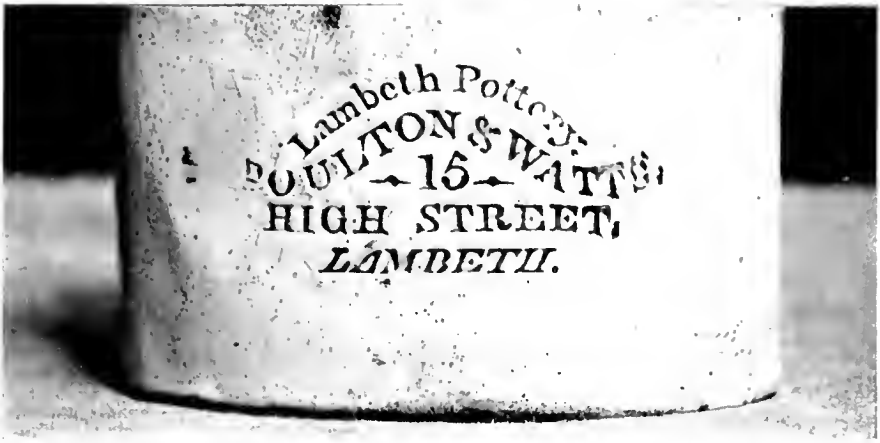 Lambeth Pottery.
DOULTON & WATTS.
15
HIGH STREET,
LAMBETH.